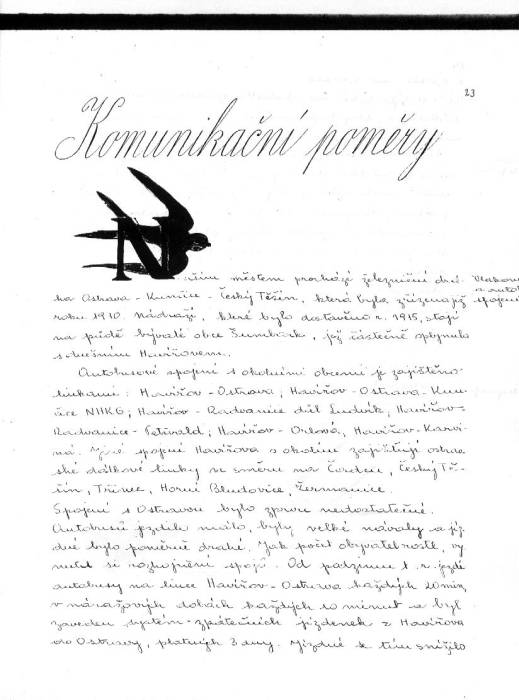 23
Komunikační poměry
Naším městem prochází železniční drá-
ha Ostrava-Kunčice - Český Těšín, která byla zřízena již
roku 1910. Nádraží, které bylo dostavěno r. 1915, stojí
na půdě bývalé obce Šumbark, jež částečně splynula
s dnešním Havířovem.
Vlakové
a autob.
spojení
Autobusové spojení s okolními obcemi je zajištěno
linkami: Havířov - Ostrava; Havířov - Ostrava - Kun-
čice NHKG; Havířov - Radvanice důl Ludvík; Havířov -
Radvanice - Petřvald; Havířov - Orlová, Havířov - Karvi-
ná. Jiné spojení Havířova s okolím zajišťují ostrav-
ské dálkové linky ve směru na Český Tě-
šín, Třinec, Horní Bludovice, Žermanice.
Spojení s Ostravou bylo zprvu nedostatečné.
Autobusů jezdilo málo, byly velké návaly a jíz-
dné bylo poměrně drahé. Jak počet obyvatel rostl, vy-
nutil si rozhojnění spojů. Od podzimu t. r. jezdí
autobusy na lince Havířov - Ostrava každých 20 min,
v nárazových dobách každých 10 minut a byl
zaveden systém zpátečních jízdenek z Havířova
do Ostravy, platných 3 dny. Jízdné se tím snížilo